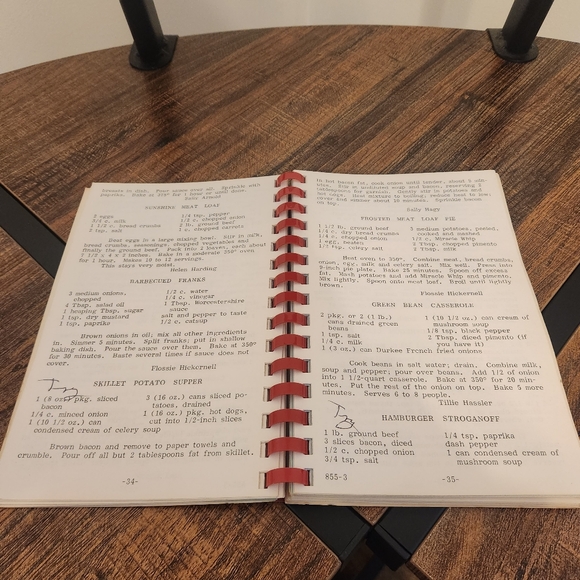 breasts in dish. Pour sauce over all. Sprinkle with
paprika. Bake at 350° for 1 hour or until done.
SUNSHINE MEAT LOAF
2 eggs
3/4 c. milk
1 1/2 c. bread crumbs
1 tsp. salt
1/4 tsp. pepper
1/2 c. chopped onion
2 lb. ground beef
1 c. chopped carrots
Beat eggs in a large mixing bowl. Stir in milk,
bread crumbs, seasonings, chopped vegetables and
finally the ground beef. Pack into 2 loaves, each about
7 1/2 x 4 x 2 inches. Bake in a moderate 350° oven
for 1 hour. Makes 10 to 12 servings.
This stays very moist.
Helen Harding
BARBECUED FRANKS
2 medium onions,
chopped
4 Tbsp. salad oil
1 heaping Tbsp. sugar
1 tsp. dry mustard
1 tsp. paprika
1/2 c. water
1/4 c. vinegar
1 Tbsp. Worcestershire
sauce
salt and pepper to taste
1/2 c. catsup
Brown onions in oil; mix all other ingredients
in. Simmer 5 minutes. Split franks; put in shallow
baking dish. Pour the sauce over them. Bake at 350°
for 30 minutes. Baste several times if sauce does not
cover.
Flossie Hickernell
SKILLET POTATO SUPPER
1 (8 oz.) pkg. sliced
bacon
1/4 c. minced onion
1 (10 1/2 oz.) can
condensed cream of celery soup
3 (16 oz.) cans sliced po-
tatoes, drained
1 (16 oz.) pkg. hot dogs,
cut into 1/2-inch slices
Brown bacon and remove to paper towels and
crumble. Pour off all but 2 tablespoons fat from skillet.
-34-
in hot bacon fat, cook onion until tender, about 5 min-
Sally Nagy
FROSTED MEAT LOAF PIE
1 1/2 lb. ground beef
1/2 c. dry bread crumbs
1/4 c. chopped onion
1 egg, beaten
1/2 tsp. celery salt
5 medium potatoes, peeled,
cooked and mashed
1/2 c. Miracle Whip
2 Tbsp. chopped pimento
2 Tbsp. milk
Heat oven to 350°. Combine meat, bread crumbs,
onion, egg, milk and celery salt. Mix well. Press into
9-inch pie plate. Bake 25 minutes. Spoon off excess
fat. Mash potatoes and add Miracle Whip and pimento.
Mix lightly. Spoon onto meat loaf. Broil until lightly
brown.
Flossie Hickernell
GREEN BEAN CASSEROLE
2 pkg. or 2 (1 lb.)
cans drained green
beans
1 tsp. salt
1/4 c. milk
1 (3 oz.) can Durkee French fried onions
1 (10 1/2 oz.) can cream of
mushroom soup
1/8 tsp. black pepper
2 Tbsp. diced pimento (if
you have it)
Cook beans in salt water, drain. Combine milk,
soup and pepper; pour over beans. Add 1/2 of onion
into 1 1/2-quart casserole. Bake at 350° for 20 min-
utes. Put the rest of the onion on top. Bake 5 more
minutes. Serves 6 to 8 people.
Tillie Hassler
HAMBURGER STROGANOFF
1 lb. ground beef
3 slices bacon, diced
1/2 c. chopped onion
3/4 tsp. salt
1/4 tsp. paprika
dash pepper
1 can condensed cream of
mushroom soup
855-3
-35-